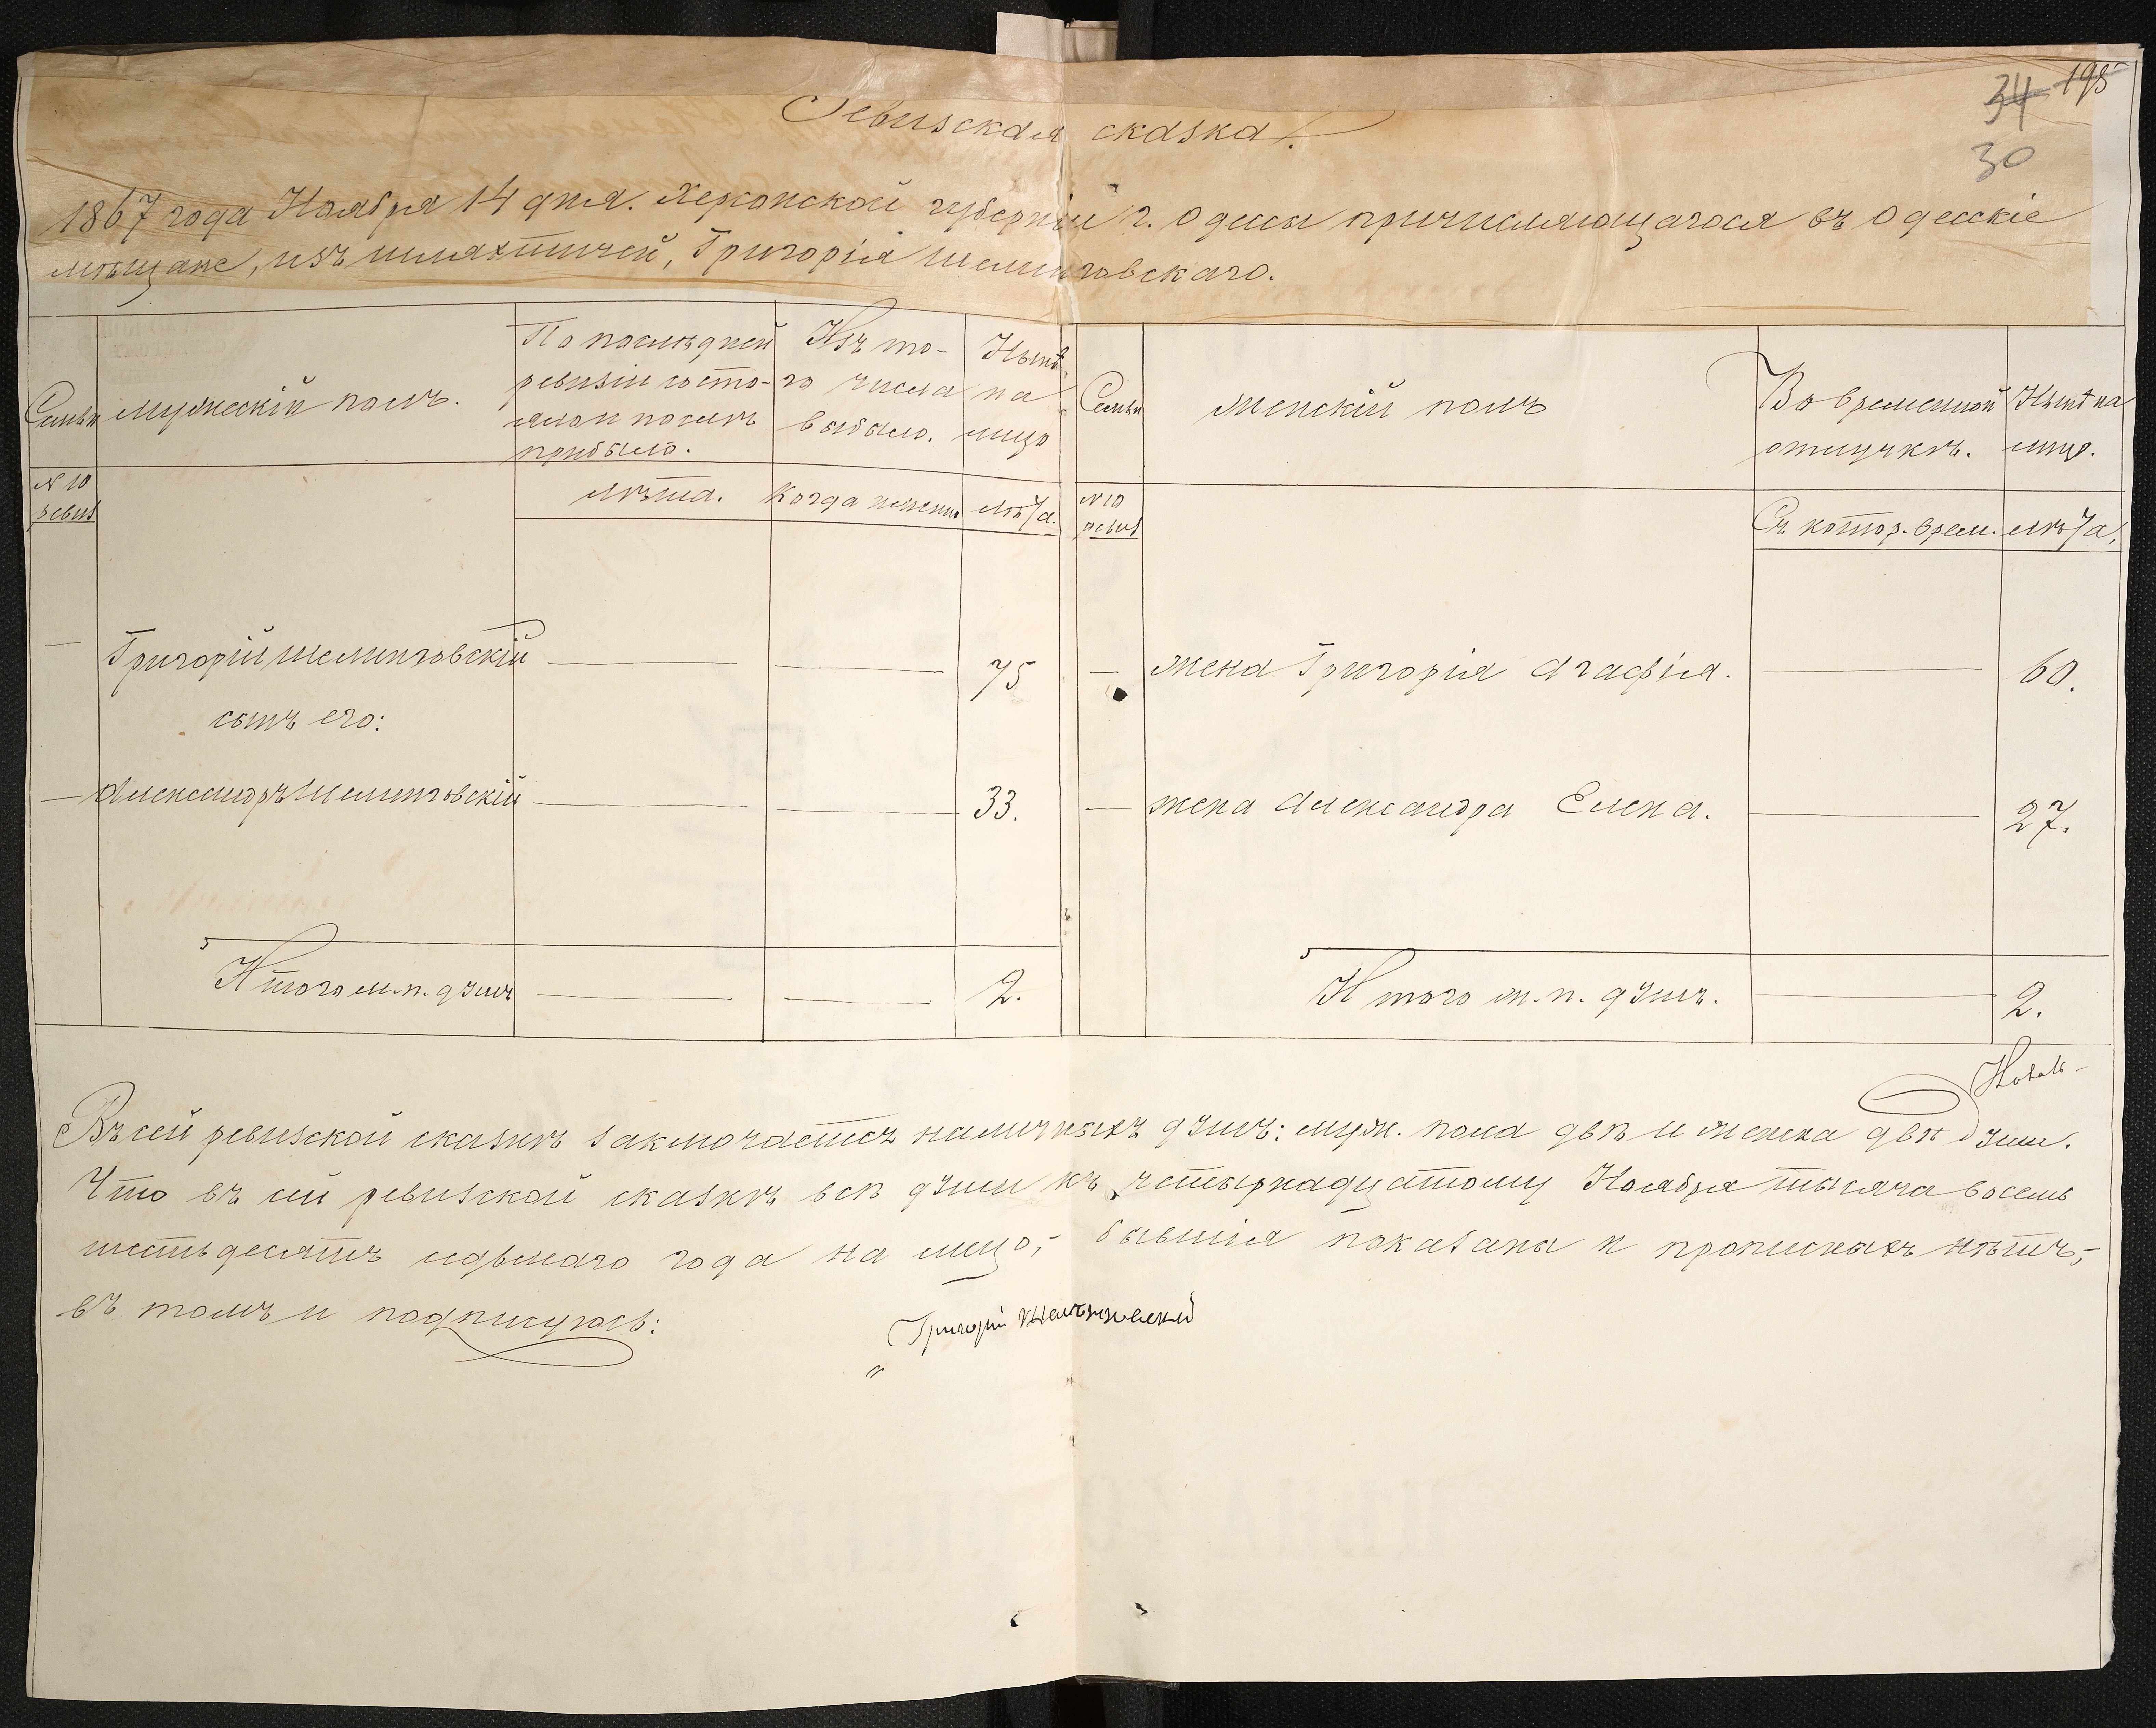 34 195
30
Ревизская сказка.
1867 года Ноября 14 дня. Херсонской губерніи г. Одессы причисляющагося въ Одесскіе
мѣщане, изъ шляхтичей, Григорія Шелинговскаго.
Семьи
Мужескій полъ.
По послѣдней
ревизіи состо-
яло и послѣ
прибыло.
Изъ то-
го числа
выбыло.
Нынѣ
на
лицо
Семьи
Женскій полъ
Во временной
отлучкѣ.
Нынѣ на
лицо.
№ 10
ревиз
Лѣта.
Когда именно
Лѣта.
№ 10
ревиз
Съ котор. врем.
Лѣта.
— Григорій Шелинговскій — — 75 — жена Григорія Агафія. — 60.
сынъ его:
— Александръ Шелинговскій — — 33. — жена Александра Елена. — 27.
Итого м. п. душъ — — 2. Итого ж. п. душъ. — 2.
Въ сей ревизской сказкѣ заключается наличныхъ душъ: муж. пола двѣ и женска двѣ души.
Что въ сей ревизской сказкѣ всѣ души къ четырнадцатому Ноября тысяча восемь
шестьдесятъ седьмаго года на лицо, бывшія показаны и прописныхъ нѣтъ,
въ томъ и подписуюсь:
Григорій Шелинговскій